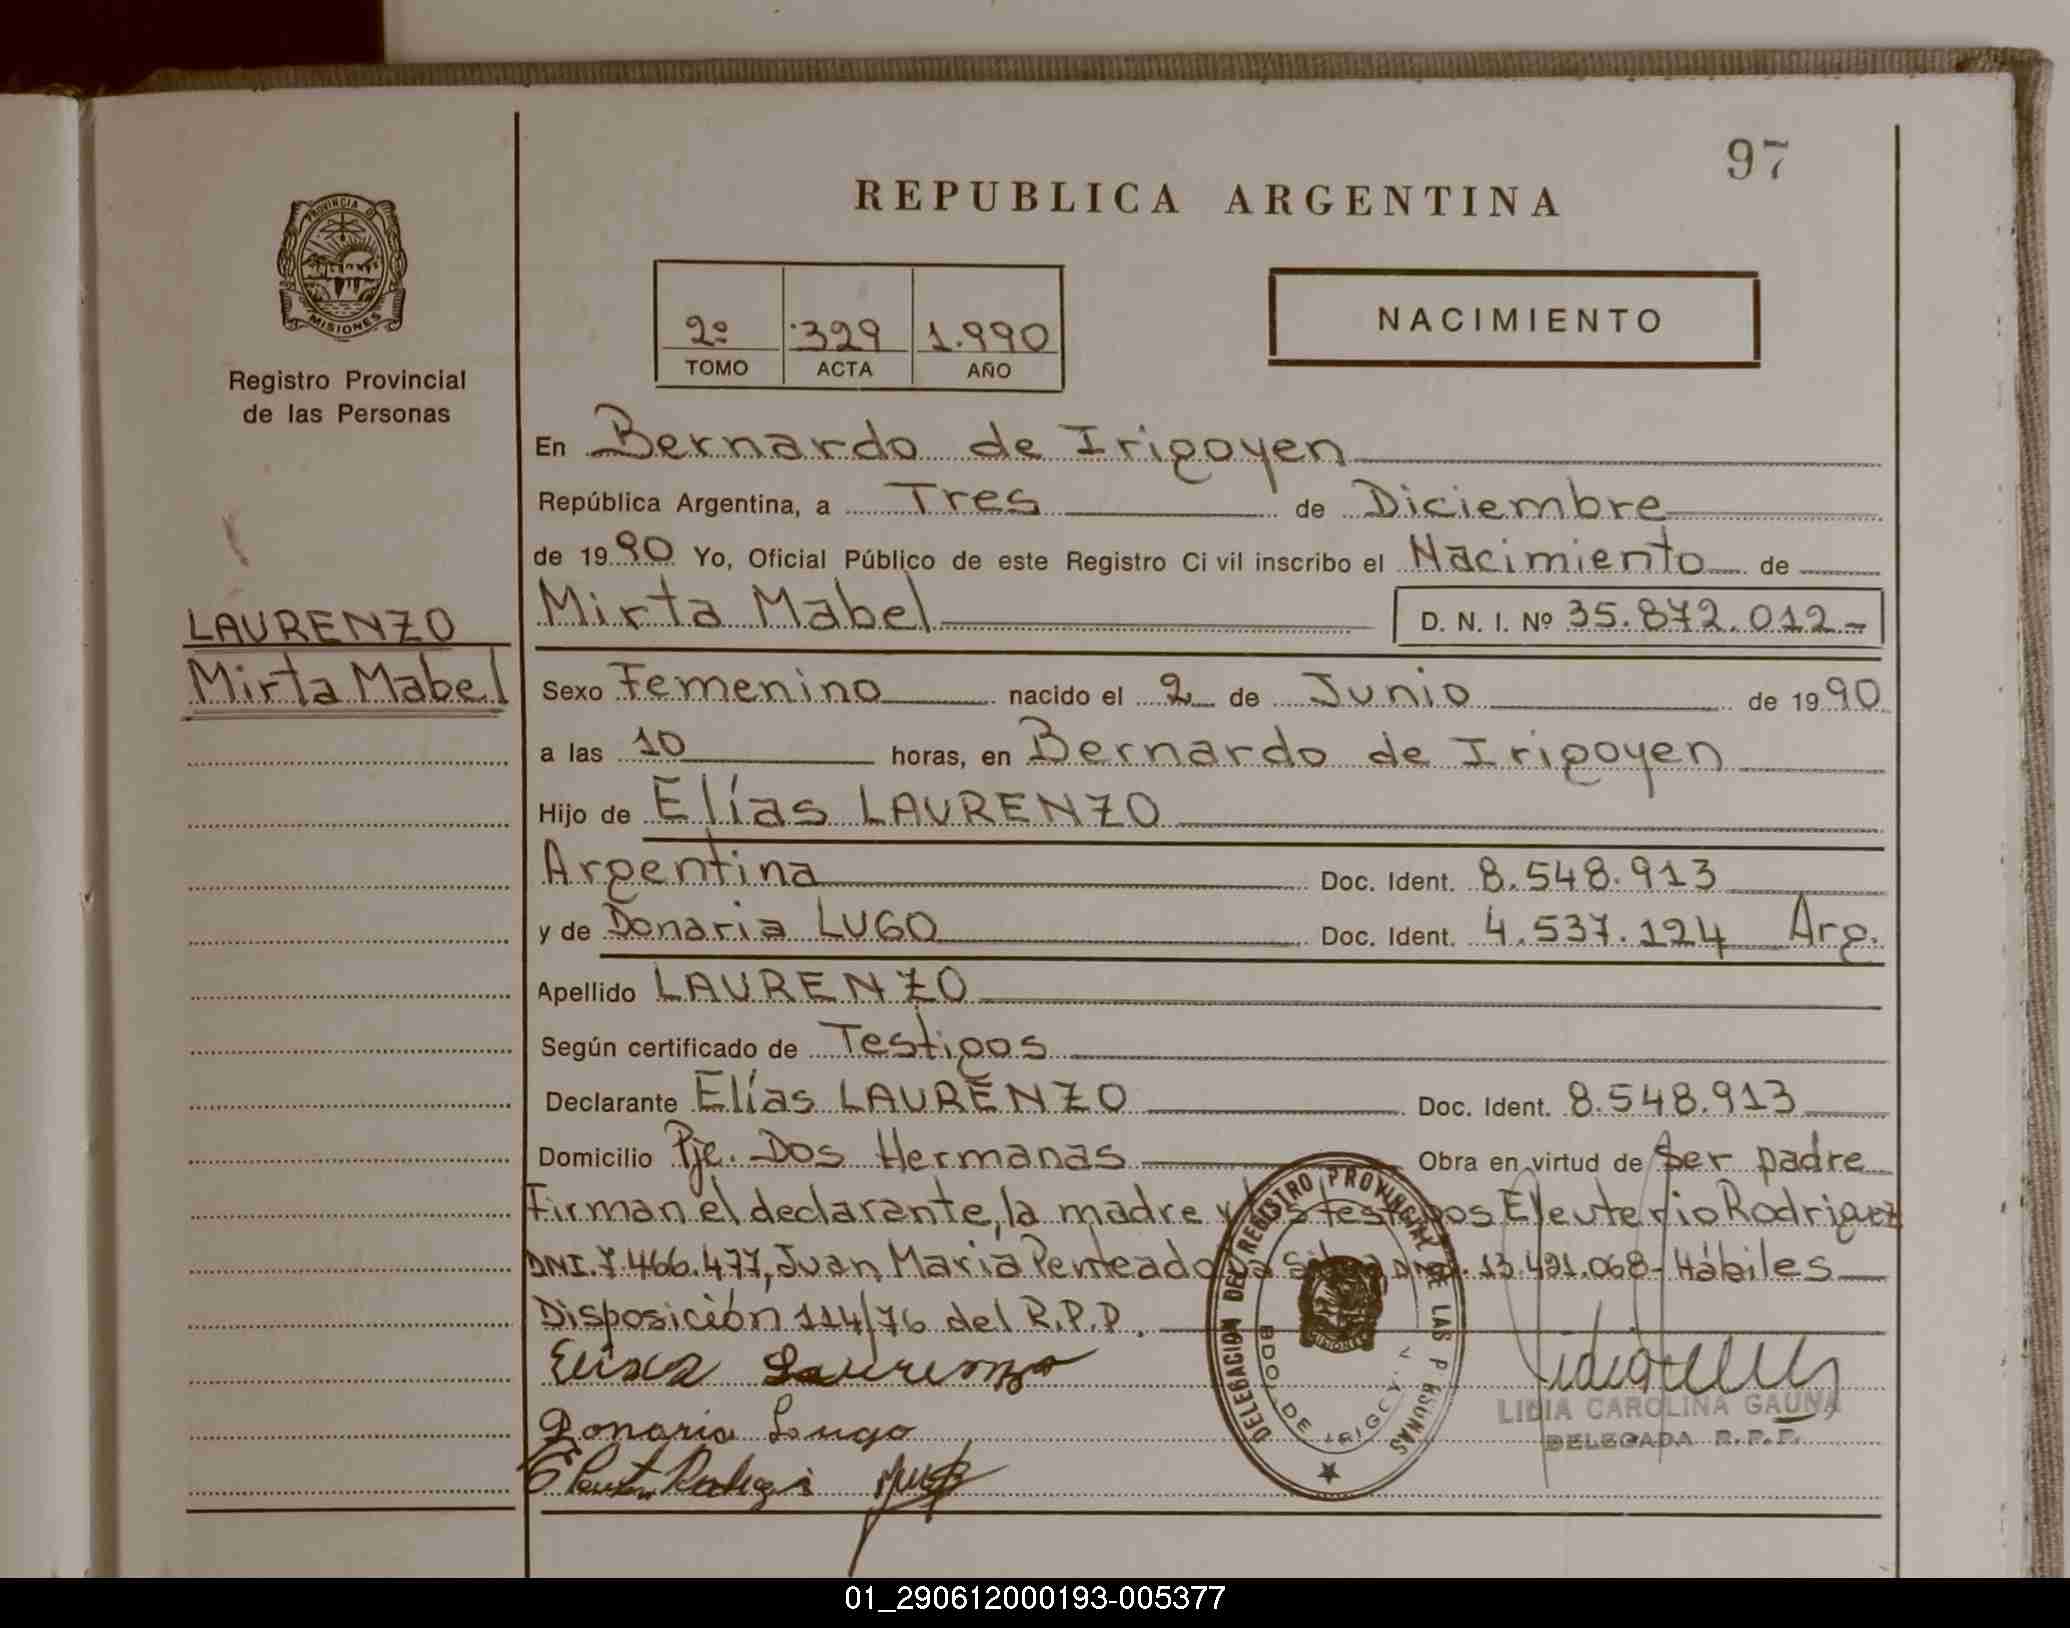 97
REPUBLICA ARGENTINA
PROVINCIA DE
MISIONES
Registro Provincial
de las Personas
2º .329 1.990
TOMO ACTA AÑO
NACIMIENTO
En Bernardo de Irigoyen
República Argentina, a Tres de Diciembre
de 1990 Yo, Oficial Público de este Registro Ci vil inscribo el Nacimiento de
LAURENZO
Mirta Mabel
Mirta Mabel D. N. I. Nº 35.872.012-
Sexo Femenino nacido el 2 de Junio de 1990
a las 10 horas, en Bernardo de Irigoyen
Hijo de Elías LAURENZO
Argentina Doc. Ident. 8.548.913
y de Donaria LUGO Doc. Ident. 4.537.124 Arg.
Apellido LAURENZO
Según certificado de Testigos
Declarante Elías LAURENZO Doc. Ident. 8.548.913
Domicilio Pje. Dos Hermanas Obra en virtud de Ser padre
Firman el declarante, la madre y los testigos Eleuterio Rodriguez
DNI. 7.466.477, Juan Maria Penteado Da Silva DNI. 13.491.068- Hábiles
Disposición 114/76 del R.P.P.
Elias Laurenzo
Donaria Lugo
DELEGACION DEL REGISTRO PROVINCIAL DE LAS P RSONAS
BDO. DE IRIGOYEN
MISIONES
LIDIA CAROLINA GAUNA
DELEGADA R.P.P.
01_290612000193-005377